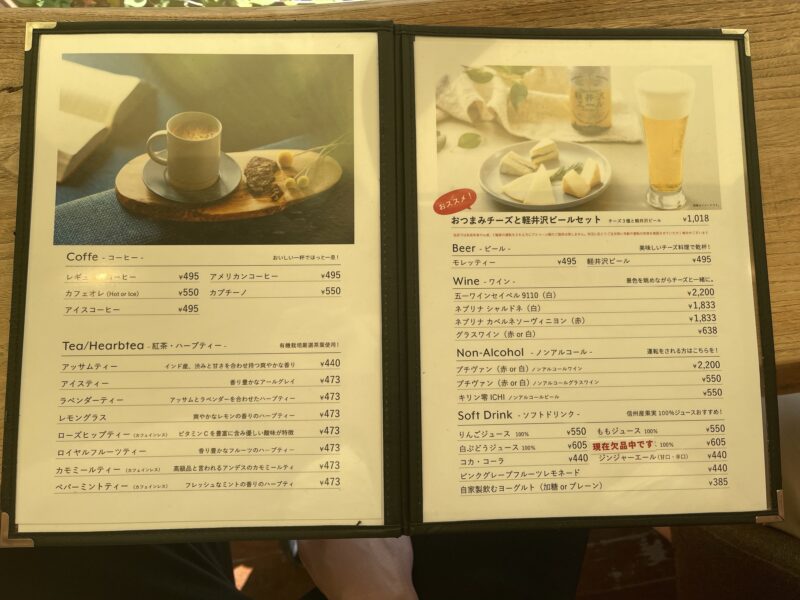 Coffe - コーヒー -
おいしい一杯でほっと一息！
レギュ コーヒー ¥495 アメリカンコーヒー ¥495
カフェオレ (Hot or Ice) ¥550 カプチーノ ¥550
アイスコーヒー ¥495
Tea/Hearbtea - 紅茶・ハーブティー -
有機栽培厳選茶葉使用！
アッサムティー インド産、渋みと甘さを合わせ持つ爽やかな香り ¥440
アイスティー 香り豊かなアールグレイ ¥473
ラベンダーティー アッサムとラベンダーを合わせたハーブティー ¥473
レモングラス 爽やかなレモンの香りのハーブティー ¥473
ローズヒップティー (カフェインレス) ビタミンCを豊富に含み優しい酸味が特徴 ¥473
ロイヤルフルーツティー 香り豊かなフルーツのハーブティー ¥473
カモミールティー (カフェインレス) 高級品と言われるアンデスのカモミールティ ¥473
ペパーミントティー (カフェインレス) フレッシュなミントの香りのハーブティ ¥473
おススメ！
おつまみチーズと軽井沢ビールセット チーズ3種と軽井沢ビール ¥1,018
Beer - ビール -
美味しいチーズ料理で乾杯！
モレッティー ¥495 軽井沢ビール ¥495
Wine - ワイン -
景色を眺めながらチーズと一緒に。
五一ワインセイベル9110（白） ¥2,200
ネプリナ シャルドネ（白） ¥1,833
ネプリナ カベルネソーヴィニヨン（赤） ¥1,833
グラスワイン（赤 or 白） ¥638
Non-Alcohol - ノンアルコール -
運転をされる方はこちらを！
プチヴァン（赤 or 白）ノンアルコールワイン ¥2,200
プチヴァン（赤 or 白）ノンアルコールグラスワイン ¥550
キリン零 ICHI ノンアルコールビール ¥550
Soft Drink - ソフトドリンク -
信州産果実100%ジュースおすすめ！
りんごジュース 100% ¥550 ももジュース 100% ¥550
白ぶどうジュース 100% ¥605 現在欠品中です 100% ¥605
コカ・コーラ ¥440 ジンジャーエール(甘口・辛口) ¥440
ピンクグレープフルーツレモネード ¥440
自家製飲むヨーグルト（加糖 or プレーン） ¥385